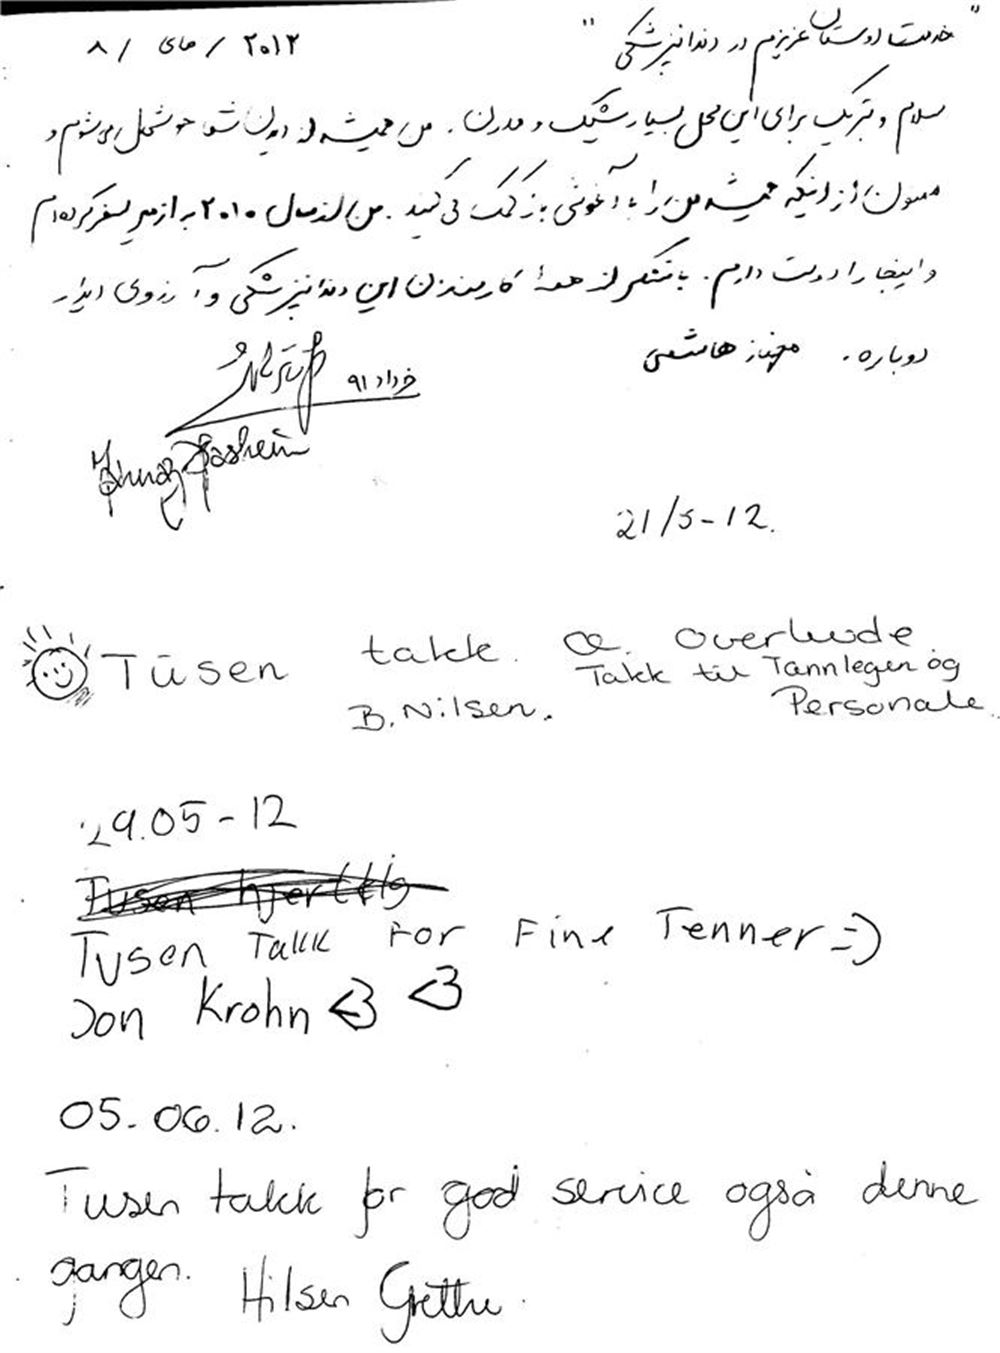 " خدمت دوستان عزیزم در دندانپزشکی "
۲۰۱۲ / مای / ۸
سلام و تبریک برای این محل بسیار شیک و مدرن. من همیشه از دیدن شما خوشحال میشوم و
ممنون از اینکه همیشه من را با آغوش باز کمک می کنید. من از سال ۲۰۱۰ به ازمیر سفر کرده ام
و اینجا را دوست دارم. با تشکر از همهٔ کارمندان این دندانپزشکی و آرزوی دیدار
دوباره. مهناز هاشمی
خرداد ۹۱
Mahnaz Hashemi
21/5-12.
Tūsen takk. B. Nilsen.
Œ. overlevde
Takk til Tannlegen og
Personale.
29.05-12
Tusen hjerttlig
Tusen Takk For Fine Tenner =)
Jon Krohn <3 <3
05.06.12.
Tusen takk for god service også denne
gangen. Hilsen Grethe.